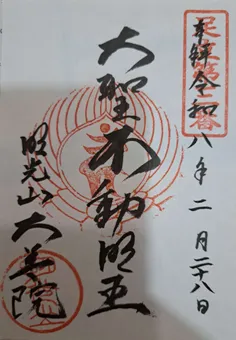 奉拝 令和八年二月二十八日
大聖不動明王
明光山 大善院